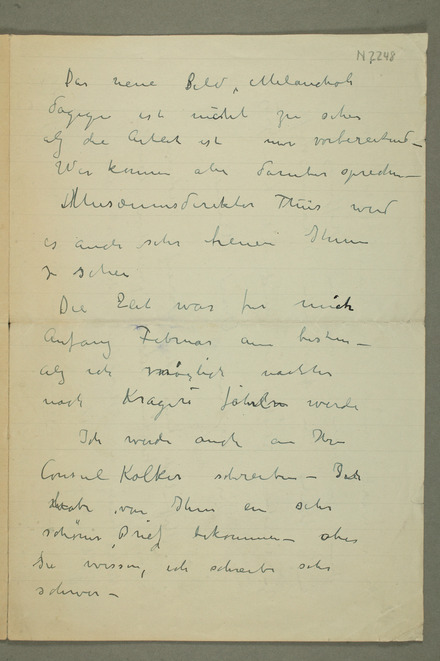 N 2248
Das neue Bild „Melancholi
dagegen ist nicht zu sehen
als die Arbeit ist nur vorbereitend –
Wir können aber darüber sprechen –
Museumsdirektor Thiis wird
es auch sehr freuen Ihnen
zu sehen
Die Zeit war für mich
Anfang Februar am besten –
als ich möglich nachher
nach Kragerö fahren werde
Ich werde auch an Hrn
Consul Kolker schreiben – Ich
habe von Ihm ein sehr
schönes Brief bekommen – aber
Sie wissen, ich schreibe sehr
schwer –